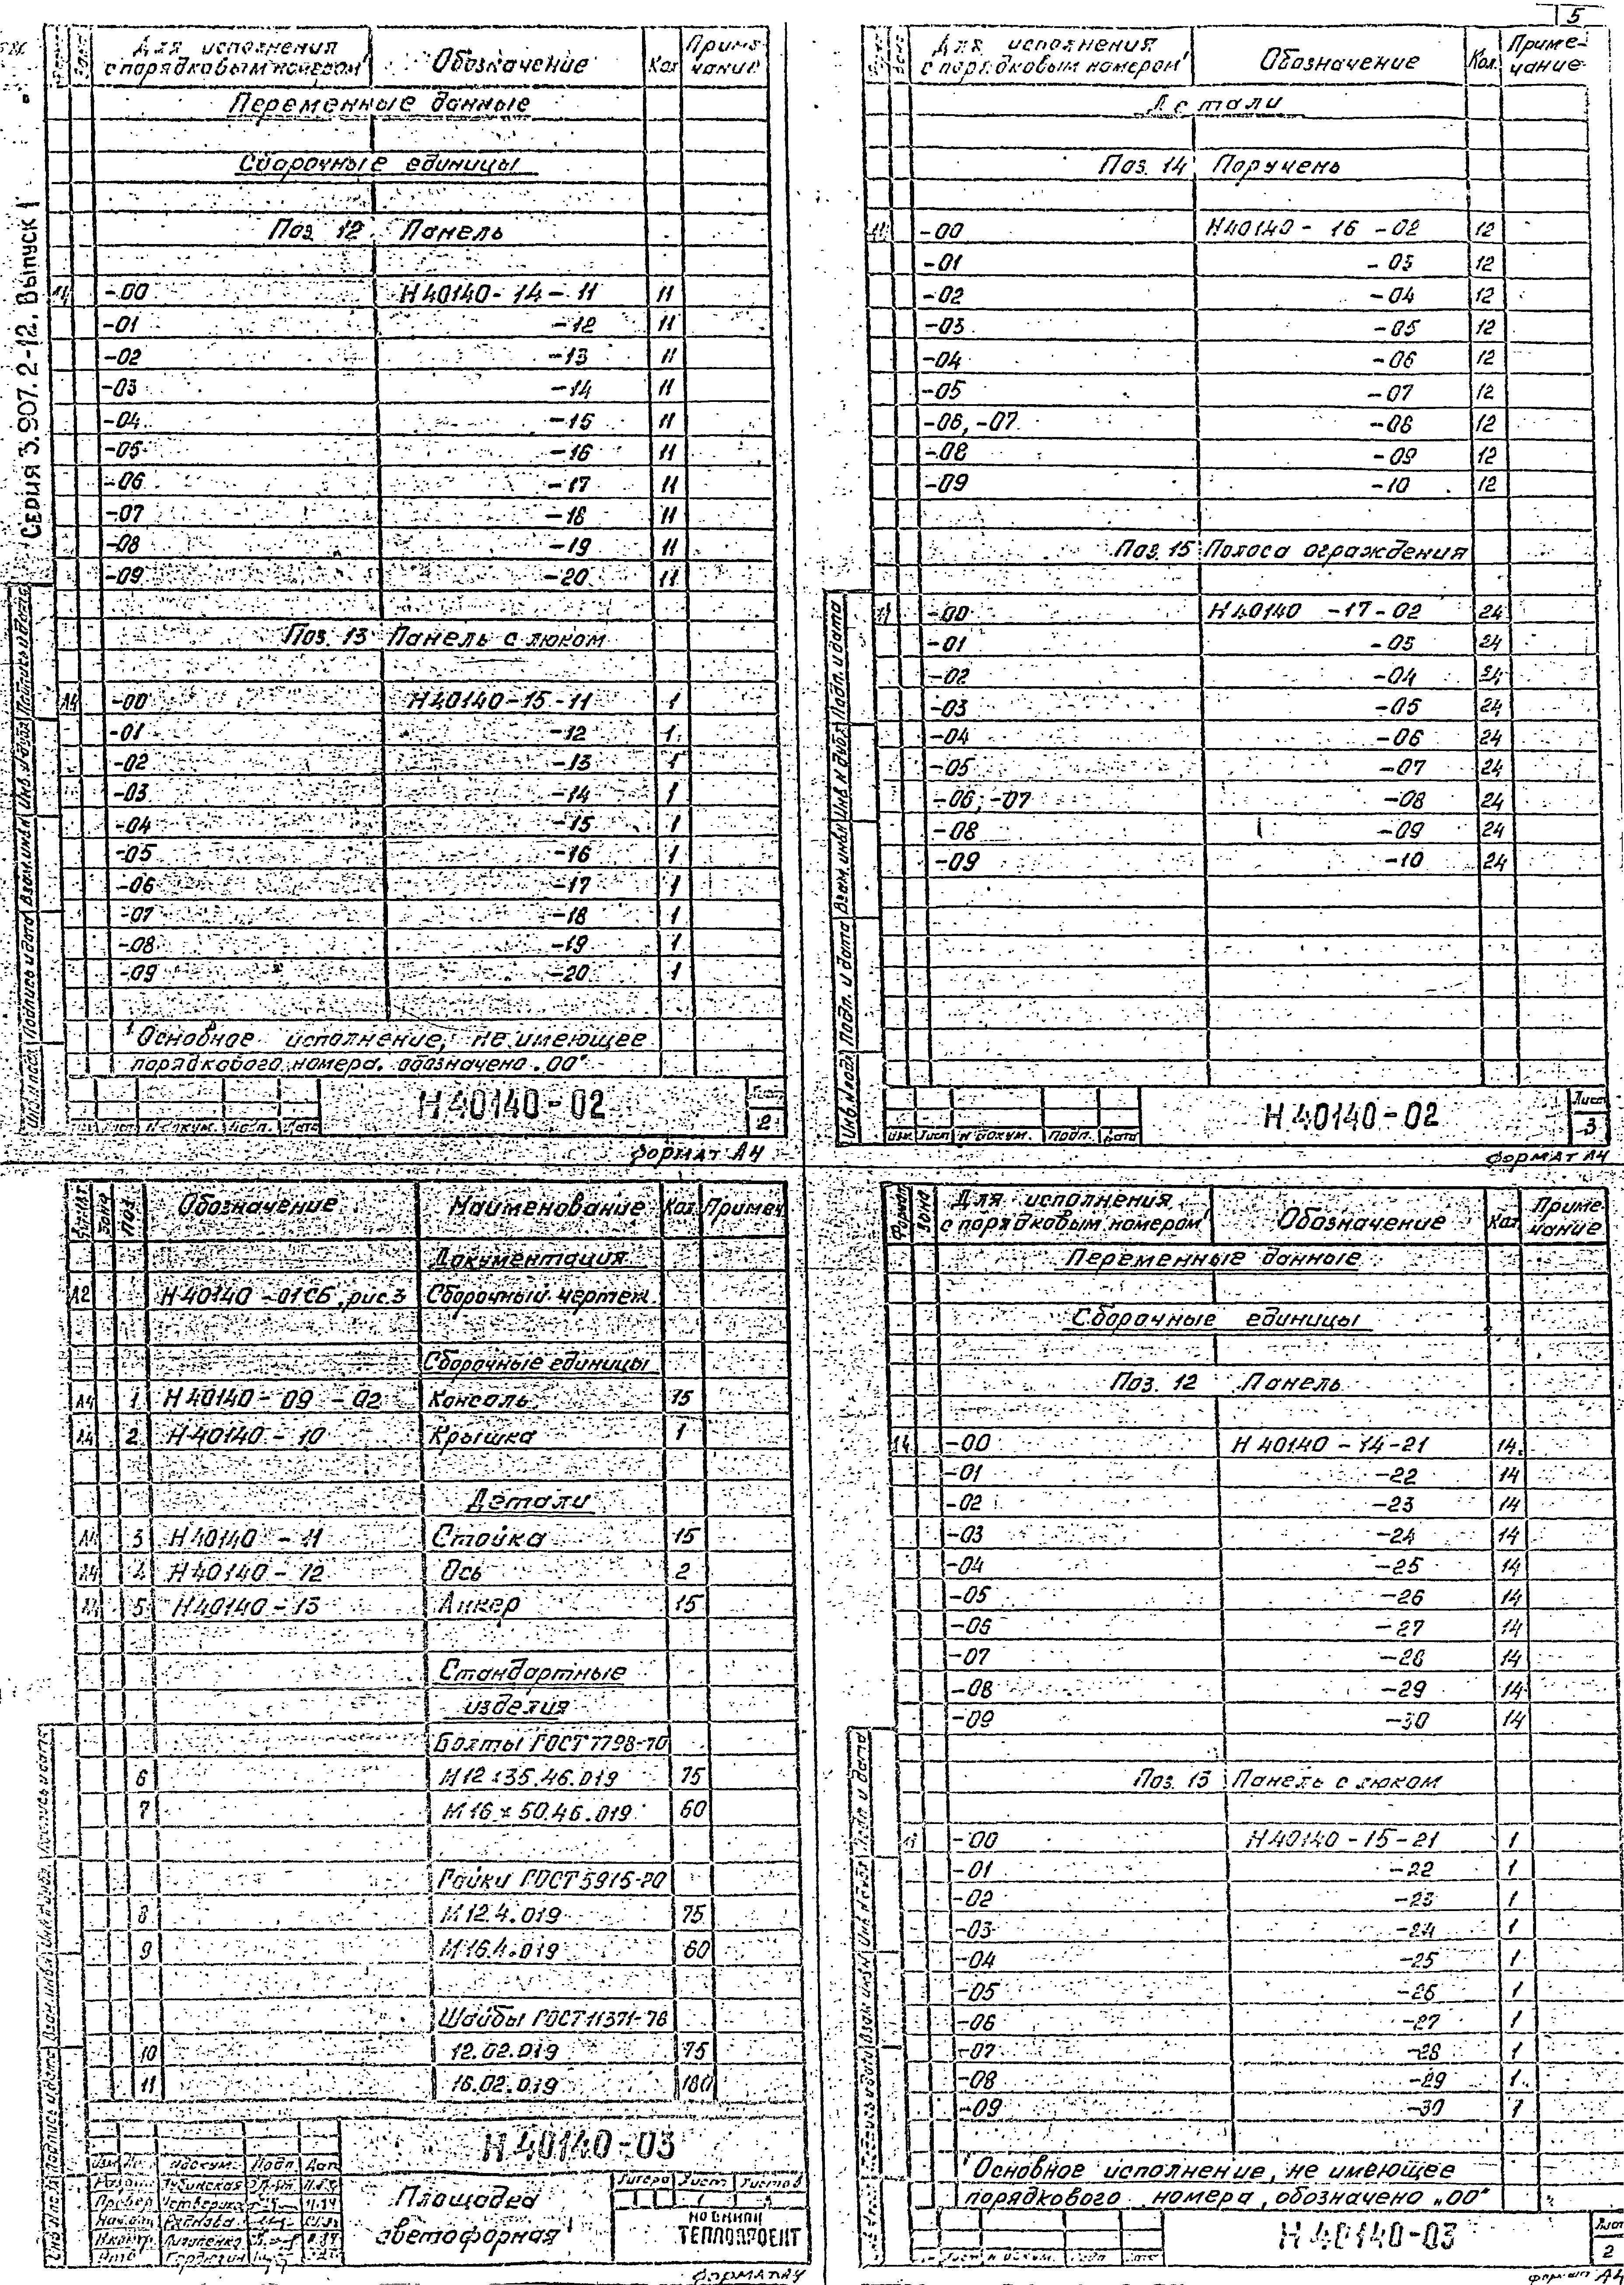 5
Серия 3.907.2-12. Выпуск 1
Для исполнения с порядковым номером¹ Обозначение Кол Приме-чание
Переменные данные
Сборочные единицы
Поз. 12 Панель
-00 Н40140-14-11 11
-01 -12 11
-02 -13 11
-03 -14 11
-04 -15 11
-05 -16 11
-06 -17 11
-07 -18 11
-08 -19 11
-09 -20 11
Поз. 13 Панель с люком
А4 -00 Н40140-15-11 1
-01 -12 1
-02 -13 1
-03 -14 1
-04 -15 1
-05 -16 1
-06 -17 1
-07 -18 1
-08 -19 1
-09 -20 1
¹ Основное исполнение, не имеющее
порядкового номера, обозначено „00"
Н40140-02
Лист
2
Формат А4
Для исполнения с порядковым номером¹ Обозначение Кол. Приме-чание
Детали
Поз. 14 Поручень
-00 Н40140-16-02 12
-01 -03 12
-02 -04 12
-03 -05 12
-04 -06 12
-05 -07 12
-06, -07 -08 12
-08 -09 12
-09 -10 12
Поз. 15 Полоса ограждения
-00 Н40140-17-02 24
-01 -03 24
-02 -04 24
-03 -05 24
-04 -06 24
-05 -07 24
-06; -07 -08 24
-08 -09 24
-09 -10 24
Изм. Лист N докум. Подп. Дата
Н40140-02
Лист
3
Формат А4
Формат Зона Поз Обозначение Наименование Кол Примеч
Документация
А2 Н40140-01СБ, рис.3 Сборочный чертеж
Сборочные единицы
А4 1 Н40140-09-02 Консоль 15
А4 2 Н40140-10 Крышка 1
Детали
А4 3 Н40140-11 Стойка 15
А4 4 Н40140-12 Ось 2
А4 5 Н40140-13 Анкер 15
Стандартные
изделия
Болты ГОСТ 7798-70
6 М12х35.46.019 75
7 М16х50.46.019 60
Гайки ГОСТ 5915-70
8 М12.4.019 75
9 М16.4.019 60
Шайбы ГОСТ 11371-78
10 12.02.019 75
11 16.02.019 180
Н40140-03
Площадка
светофорная
Литера Лист Листов
ТЕПЛОПРОЕКТ
Формат А4
Формат Зона Для исполнения с порядковым номером¹ Обозначение Кол. Приме-чание
Переменные данные
Сборочные единицы
Поз. 12 Панель
А4 -00 Н40140-14-21 14
-01 -22 14
-02 -23 14
-03 -24 14
-04 -25 14
-05 -26 14
-06 -27 14
-07 -28 14
-08 -29 14
-09 -30 14
Поз. 13 Панель с люком
-00 Н40140-15-21 1
-01 -22 1
-02 -23 1
-03 -24 1
-04 -25 1
-05 -26 1
-06 -27 1
-07 -28 1
-08 -29 1
-09 -30 1
¹ Основное исполнение, не имеющее
порядкового номера, обозначено „00"
Н40140-03
Лист
2
Формат А4